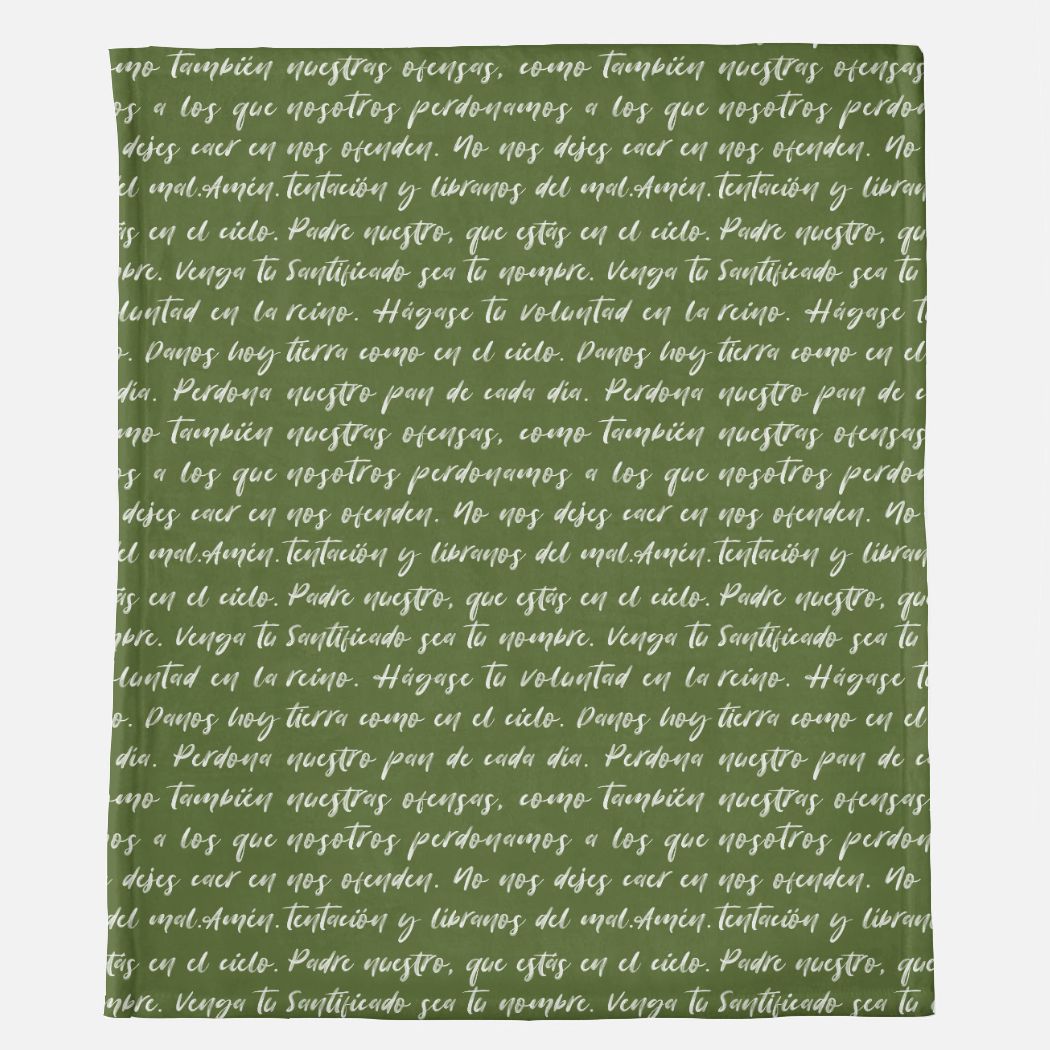 también nuestras ofensas, como también nuestras ofensas
a los que nosotros perdonamos a los que nosotros
dejes caer en nos ofenden. No nos dejes caer en nos ofenden. No
mal. Amén. tentación y libranos del mal. Amén. tentación y
en el cielo. Padre nuestro, que estás en el cielo. Padre nuestro,
Venga tu Santificado sea tu nombre. Venga tu Santificado sea tu
en la reino. Hágase tu voluntad en la reino. Hágase
Danos hoy tierra como en el cielo. Danos hoy tierra como en el
día. Perdona nuestro pan de cada día. Perdona nuestro pan de
también nuestras ofensas, como también nuestras ofensas
a los que nosotros perdonamos a los que nosotros
dejes caer en nos ofenden. No nos dejes caer en nos ofenden. No
mal. Amén. tentación y libranos del mal. Amén. tentación y
en el cielo. Padre nuestro, que estás en el cielo. Padre nuestro,
Venga tu Santificado sea tu nombre. Venga tu Santificado sea tu
en la reino. Hágase tu voluntad en la reino. Hágase
Danos hoy tierra como en el cielo. Danos hoy tierra como en el
día. Perdona nuestro pan de cada día. Perdona nuestro pan de
también nuestras ofensas, como también nuestras ofensas
a los que nosotros perdonamos a los que nosotros
dejes caer en nos ofenden. No nos dejes caer en nos ofenden. No
del mal. Amén. tentación y libranos del mal. Amén. tentación y
en el cielo. Padre nuestro, que estás en el cielo. Padre nuestro, que
Venga tu Santificado sea tu nombre. Venga tu Santificado sea tu